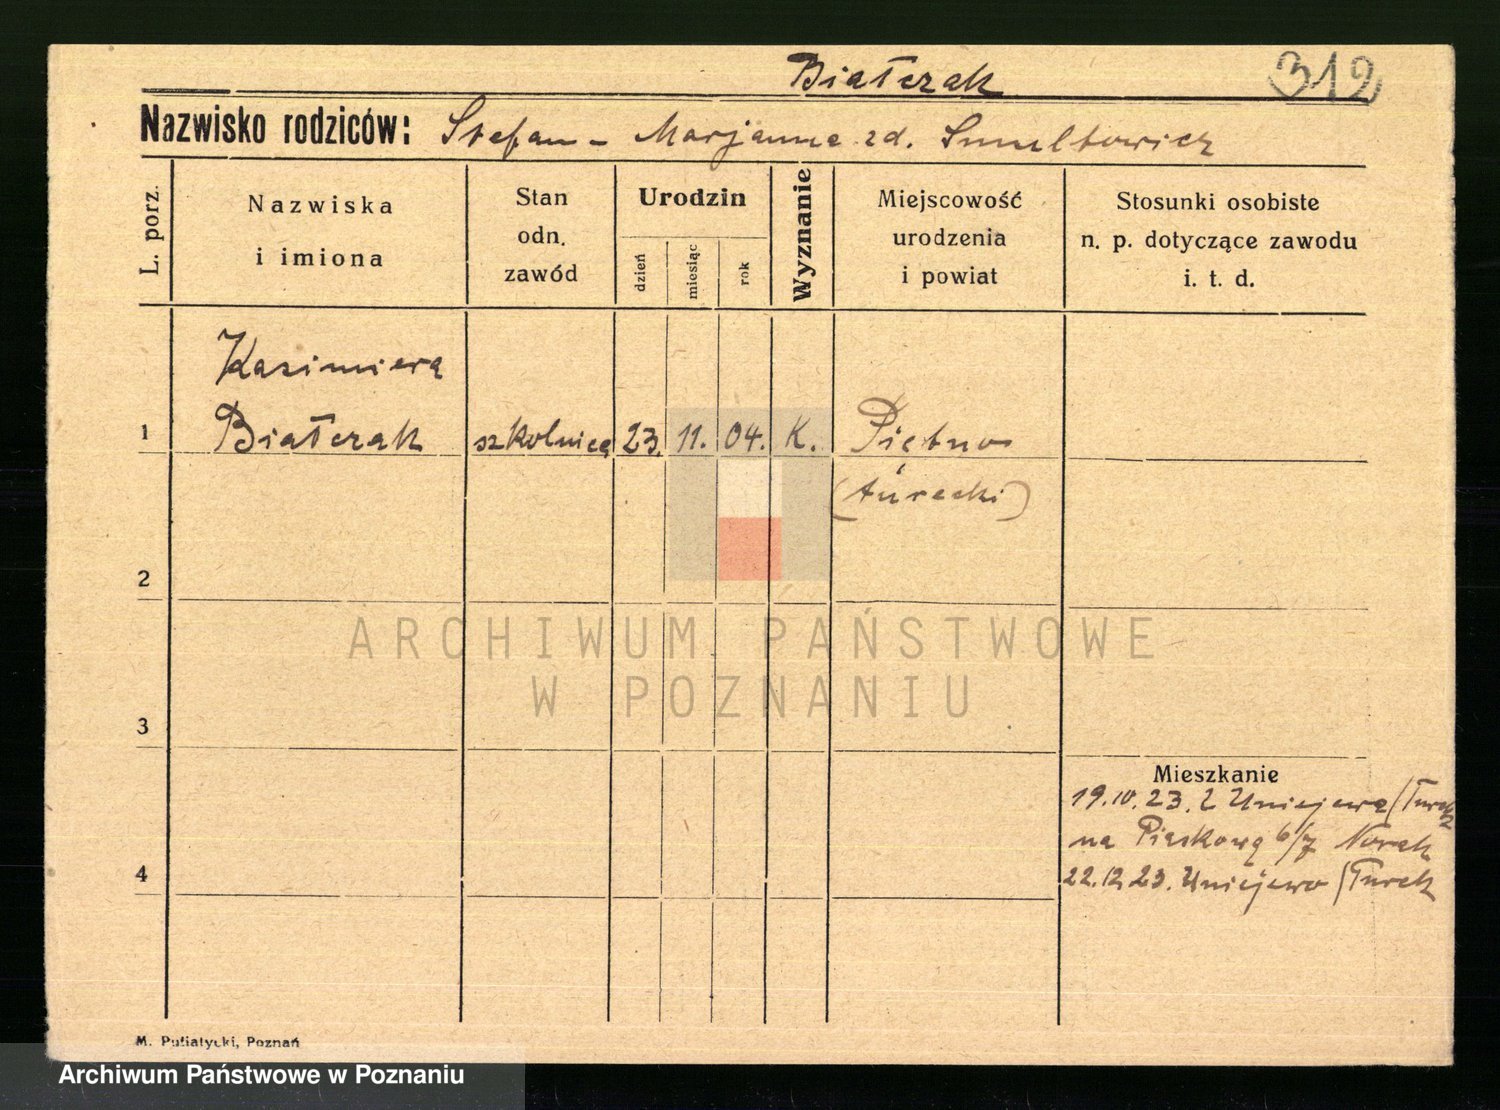 Białczak
312
Nazwisko rodziców: Stefan - Marjanna zd. Smultowicz
L. porz.
Nazwiska
i imiona
Stan
odn.
zawód
Urodzin
dzień
miesiąc
rok
Wyznanie
Miejscowość
urodzenia
i powiat
Stosunki osobiste
n. p. dotyczące zawodu
i. t. d.
Kazimiera
1 Białczak szkolnica 23. 11. 04. K. Piętno
(turecki)
2
3
ARCHIWUM PAŃSTWOWE
W POZNANIU
Mieszkanie
19.10.23. z Uniejewa (Turek
na Piaskową 6/7 Norek
4
22.12.23. Uniejewo (Turek
M. Putiatycki, Poznań
Archiwum Państwowe w Poznaniu